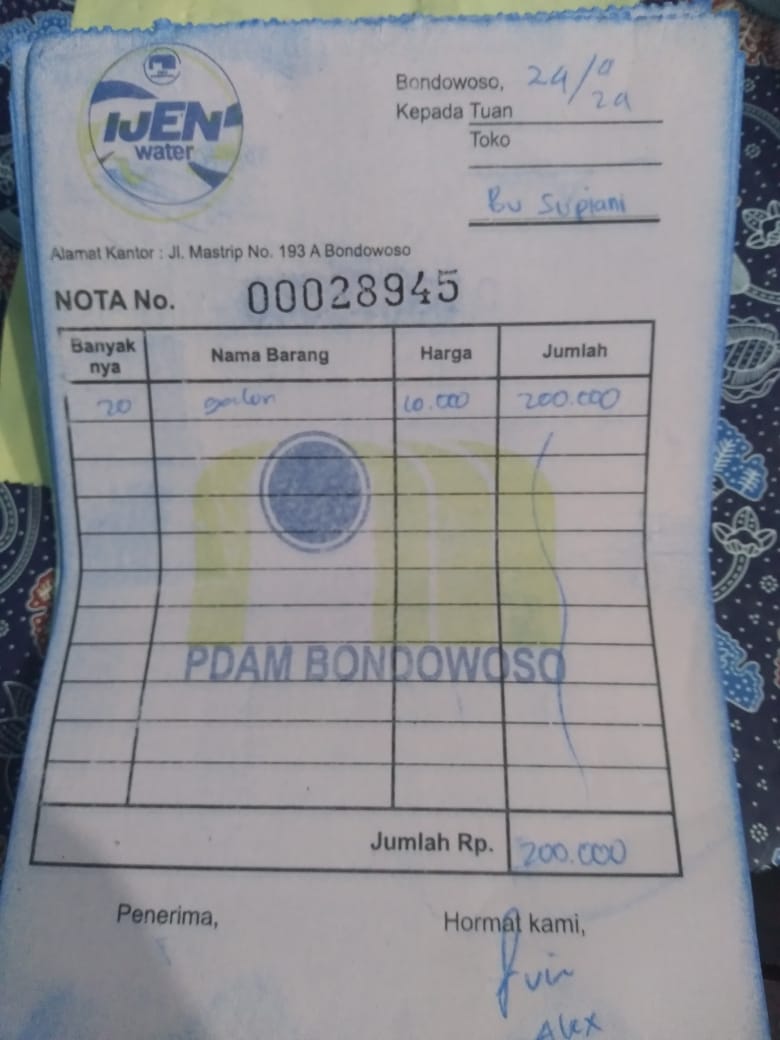 IJEN
water
Bondowoso,
Kepada Tuan
Toko
Bu Supiani
Alamat Kantor : Jl. Mastrip No. 193 A Bondowoso
NOTA No. 00028945
Banyak nya Nama Barang Harga Jumlah
20 galon 10.000 200.000
PDAM BONDOWOSO
Jumlah Rp. 200.000
Penerima, Hormat kami,
Alex